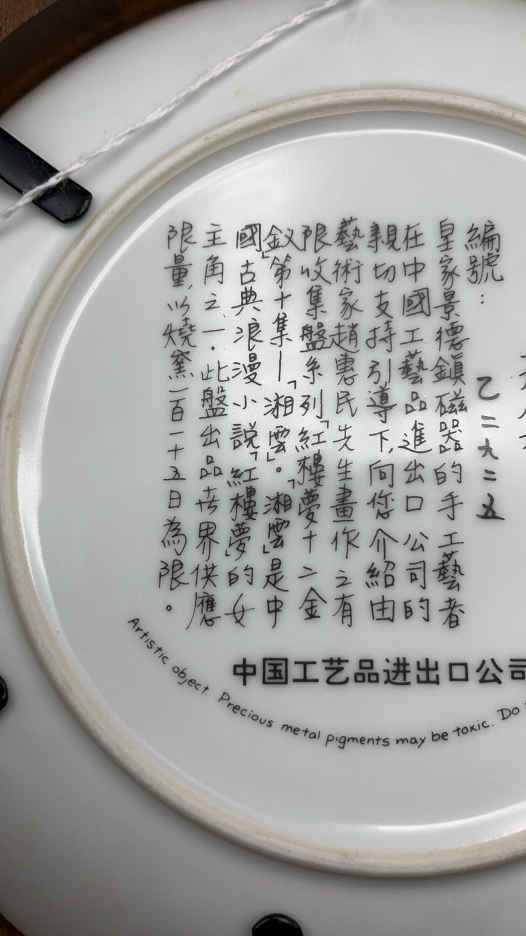 編號：乙二九二五
皇家景德鎮磁器的手工藝者
在中國工藝品進出口公司的
親切支持引導下，向您介紹由
藝術家趙惠民先生畫作之有
限收集盤系列「紅樓夢十二金
釵」第十集—「湘雲」。「湘雲」是中
國古典浪漫小說「紅樓夢」的女
主角之一．此盤出品世界供應
限量，以燒窯一百一十五日為限。
中国工艺品进出口公司
Artistic object Precious metal pigments may be toxic. Do